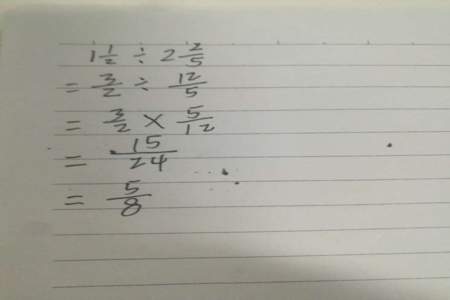 1 1/2 ÷ 2 2/5
= 3/2 ÷ 12/5
= 3/2 × 5/12
= 15/24
= 5/8